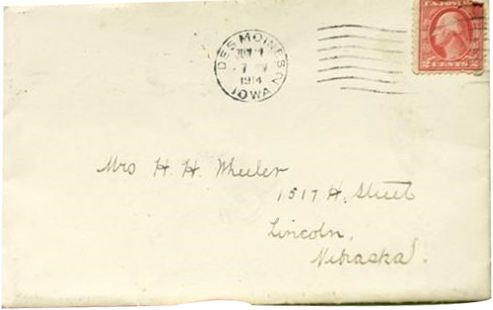 DES MOINES
1914
IOWA
2 CENTS 2
Mrs H. H. Wheeler
1517 H. Street
Lincoln,
Nebraska.